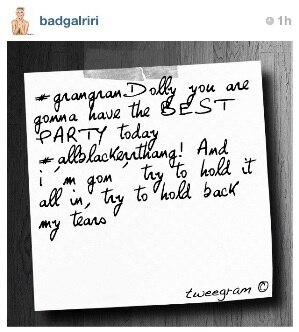 badgalriri
1h
#grangranDolly you are
gonna have the BEST
PARTY today
#allblackerrthang! And
i'm gon' try to hold it
all in, try to hold back
my tears
tweegram ©